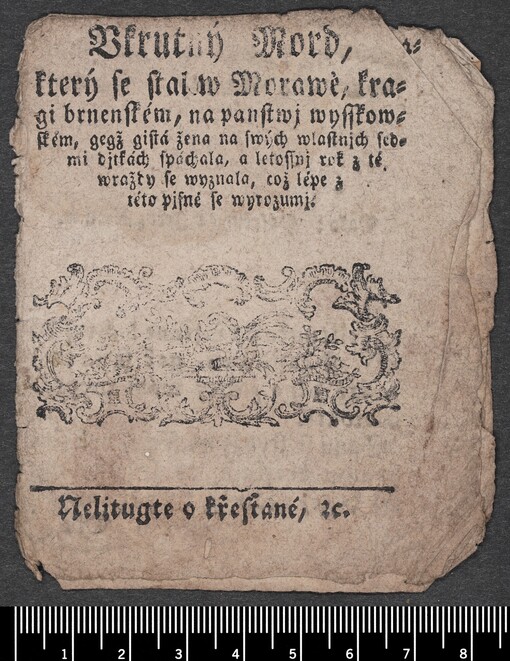 Vkrutný Mord,
který ſe ſtal w Morawě, kra⸗
gi brnenſkém, na panſtwj wyſſkow⸗
ſkém, gegž giſtá žena na ſwých wlaſtnjch ſed⸗
mi djtkách ſpáchala, a letoſſnj rok z té
wraždy ſe wyznala, což lépe z
této pjſně ſe wyrozumj.
Nelitugte o křeſťané, ꝛc.
1 2 3 4 5 6 7 8